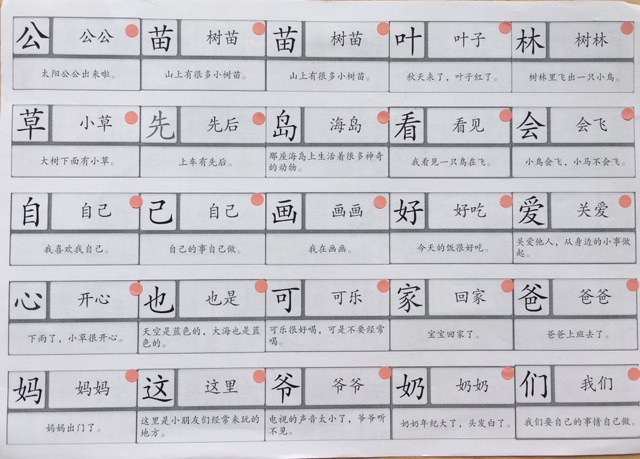 公 公公 苗 树苗 苗 树苗 叶 叶子 林 树林
太阳公公出来啦。 山上有很多小树苗。 山上有很多小树苗。 秋天来了，叶子红了。 树林里飞出一只小鸟。
草 小草 先 先后 岛 海岛 看 看见 会 会飞
大树下面有小草。 上车有先后。 那座海岛上生活着很多神奇的动物。 我看见一只鸟在飞。 小鸟会飞，小马不会飞。
自 自己 己 自己 画 画画 好 好吃 爱 关爱
我喜欢我自己。 自己的事自己做。 我在画画。 今天的饭很好吃。 关爱他人，从身边的小事做起。
心 开心 也 也是 可 可乐 家 回家 爸 爸爸
下雨了，小草很开心。 天空是蓝色的，大海也是蓝色的。 可乐很好喝，可是不要经常喝。 宝宝回家了。 爸爸上班去了。
妈 妈妈 这 这里 爷 爷爷 奶 奶奶 们 我们
妈妈出门了。 这里是小朋友们经常来玩的地方。 电视的声音太小了，爷爷听不见。 奶奶年纪大了，头发白了。 我们要自己的事情自己做。